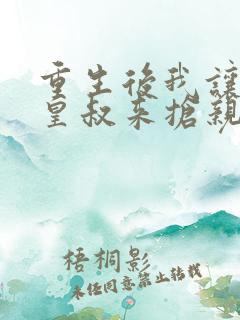 重生後我讓
皇叔来搶親
梧桐影
未经同意禁止转载